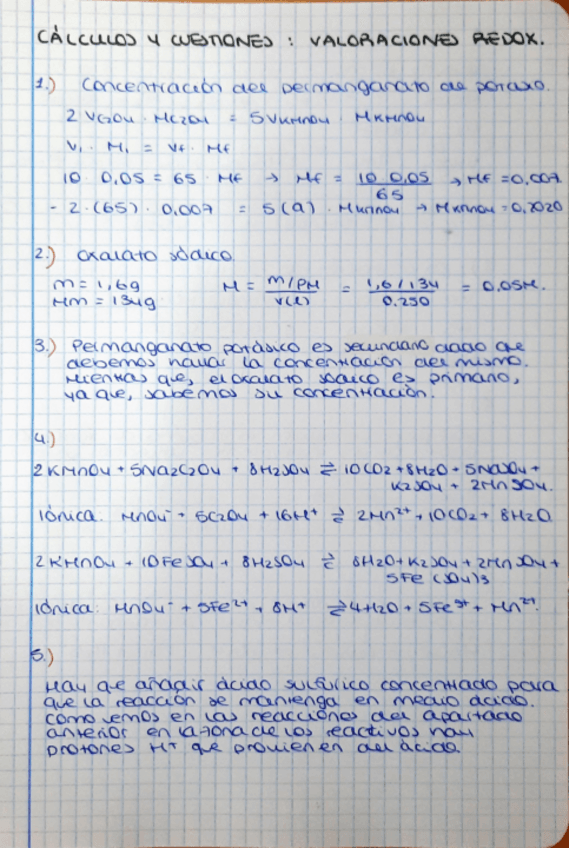 CÁLCULOS Y CUESTIONES : VALORACIONES REDOX.
1.) Concentración del permanganato de potasio.
2 VC2O4 · MC2O4 = 5 VKMnO4 · MKMnO4
Vi · Mi = Vf · Mf
10 · 0,05 = 65 · Mf → Mf = 10 · 0,05 / 65 → Mf = 0,007
- 2 · (65) · 0,007 = 5 (9) · MKMnO4 → MKMnO4 = 0,2020
2.) Oxalato sódico
m = 1,6g M = m/PM / V(l) = 1,6/134 / 0.250 = 0,05M.
Mm = 134g
3.) Permanganato potásico es secundario dado que
debemos hallar la concentración del mismo.
Mientras que, el oxalato sódico es primario,
ya que, sabemos su concentración.
4.)
2 KMnO4 + 5Na2C2O4 + 8H2SO4 ⇌ 10CO2 + 8H2O + 5NaSO4 +
K2SO4 + 2MnSO4.
Iónica: MnO4⁻ + 5C2O4 + 16H⁺ ⇌ 2Mn²⁺ + 10CO2 + 8H2O
2 KMnO4 + 10FeSO4 + 8H2SO4 ⇌ 8H2O + K2SO4 + 2MnSO4 +
5Fe (SO4)3
Iónica: MnO4⁻ + 5Fe²⁺ + 8H⁺ ⇌ 4H2O + 5Fe³⁺ + Mn²⁺.
5.)
Hay que añadir ácido sulfúrico concentrado para
que la reacción se mantenga en medio ácido.
como vemos en las reacciones del apartado
anterior en la zona de los reactivos hay
protones H⁺ que provienen del ácido.